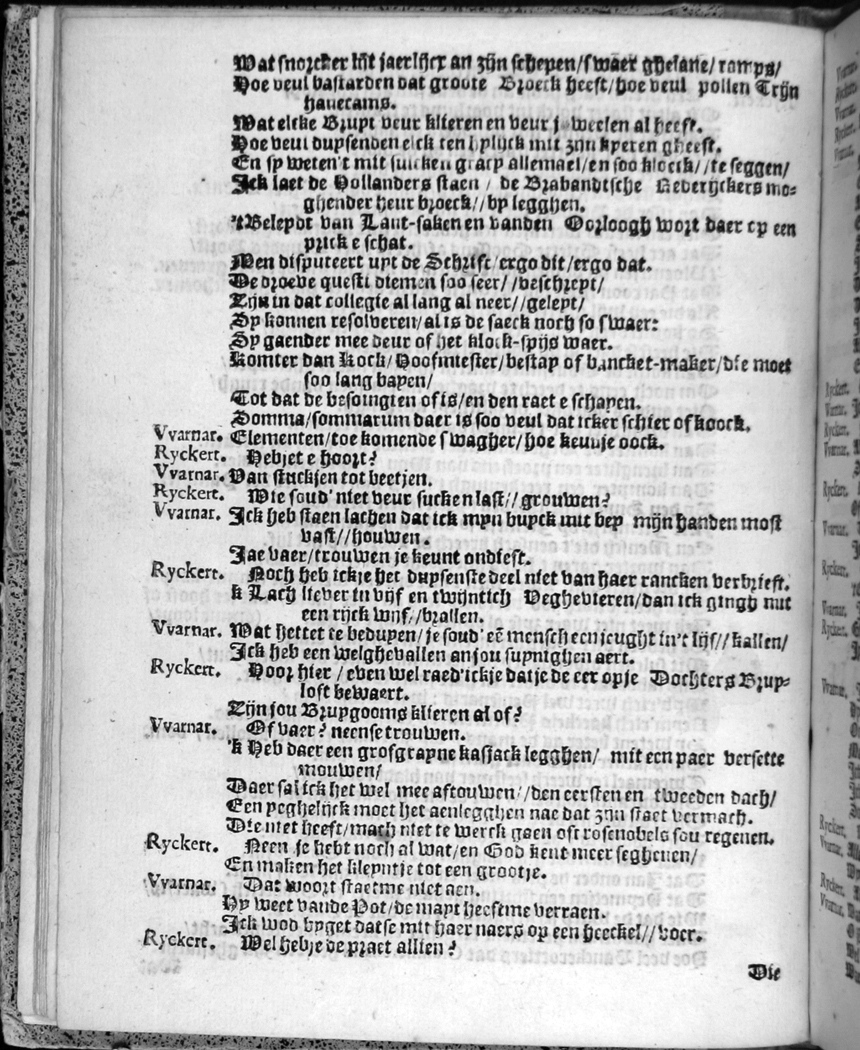 Wat snorcker hift jaerlijcx an zijn schepen/swaer ghelane/ramps/
Hoe veul bastarden dat groote Broeck heeft/hoe veul pollen Trijn
havecams.
Wat elcke Bruyt veur klieren en veur juweelen al heeft.
Hoe veul duysenden elck ten hylijck mit zijn kyeren gheeft.
En sy weten't mit sulcken graep allemael/en soo kloeck//te seggen/
Ick laet de Hollanders staen/ de Brabandtsche Rederijckers mo-
ghender heur broeck//by legghen.
'tBeleydt van Lant-saken en vanden Oorloogh wort daer op een
prick e schat.
Men disputeert uyt de Schrift/ergo dit/ergo dat.
De droeve questi diemen soo seer//beschreyt/
Zijn in dat collegie al lang al neer//geleyt/
Sy konnen resolveren/al is de saeck noch so swaer:
Sy gaender mee deur of het klock-spijs waer.
Komter dan Kock/Hoofmiester/bestay of bancket-maker/die moet
soo lang bayen/
Tot dat de besoingien of is/en den raet e schayen.
Somma/sommarum daer is soo veul dat icker schier of koock.
Vvarnar. Elementen/toe komende swagher/hoe keunje oock.
Ryckert. Hebjet e hoort?
Vvarnar. Van stuckjen tot beetjen.
Ryckert. Wie soud' niet veur sucken last//grouwen?
Vvarnar. Ick heb staen lachen dat ick myn buyck mit bey mijn handen most
vast//houwen.
Jae vaer/trouwen je keunt ondiest.
Ryckert. Noch heb ickje het duysenste deel niet van haer rancken verbrieft.
k Lach liever in vijf en twijntich Veghevieren/dan ick gingh mit
een rijck wijf//brallen.
Vvarnar. Wat hettet te beduyen/je soud' eẽ mensch een jeught in't lijf//kallen/
Ick heb een welghevallen an jou suynighen aert.
Ryckert. Hoor hier/even wel raed'ickje dat je de eer op je Dochters Bruy-
loft bewaert.
Zijn jou Bruygooms klieren al of?
Vvarnar. Of vaer? neense trouwen.
'k Heb daer een grofgrayne kasjack legghen/ mit een paer versette
mouwen/
Daer sal ick het wel mee aftouwen//den eersten en tweeden dach/
Een yeghelijck moet het aenlegghen nae dat zijn staet vermach.
Die niet heeft/mach niet te werck gaen oft rosenobels sou regenen.
Ryckert. Neen je hebt noch al wat/en God kent meer seghenen/
En maken het kleyntje tot een grootje.
Vvarnar. Dat woort staetme niet aen.
Hy weet vande Pot/de mayt heeftme verraen.
Ick wod byget datse mit haer naers op een heeckel//voer.
Ryckert. Wel hebje de praet allien?
Die